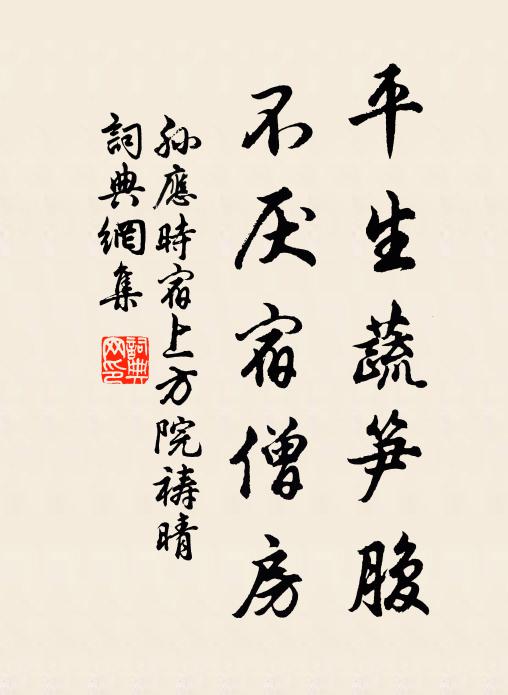 平生蔬笋腹
不厌宿僧房
孙應時宿上方院祷晴
詞典網集
詞典网印